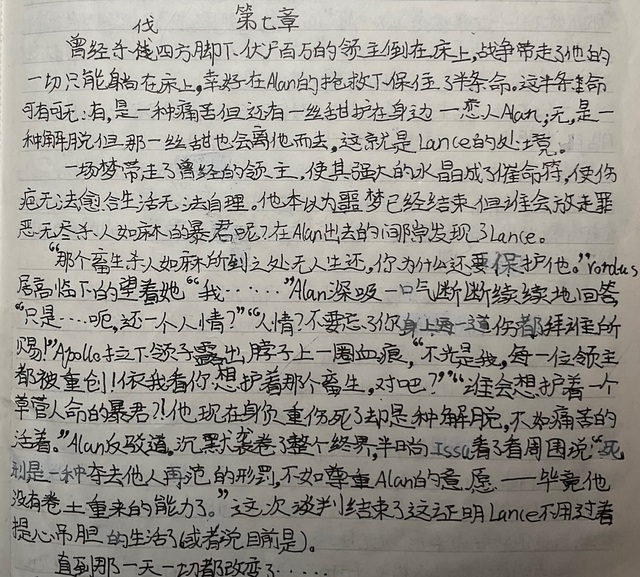 第七章
伐
曾经杀伐四方脚下伏尸百万的领主倒在床上,战争带走了他的
一切只能躺在床上,幸好在Alan的抢救下保住了半条命。这半条命
可有可无:有,是一种痛苦但还有一丝甜护在身边—恋人Alan;无,是一
种解脱但那一丝甜也会离他而去,这就是Lance的处境。
一场梦带走了曾经的领主,使其强大的水晶成了催命符,使伤
疤无法愈合生活无法自理。他本以为噩梦已经结束但谁会放走罪
恶无尽杀人如麻的暴君呢?在Alan出去的间隙发现了Lance。
“那个畜生杀人如麻所到之处无人生还,你为什么还要保护他。”
居高临下的望着她“我……”Alan深吸一口气断断续续地回答
“只是……呃,还一个人情?”“人情?不要忘了你身上每一道伤都拜谁所
赐!”Apollo拉下领子露出,脖子上一圈血痕,“不光是我,每一位领主
都被重创!依我看你想护着那个畜生,对吧?”“谁会想护着一个
草菅人命的暴君?!他现在身负重伤死了却是种解脱,不如痛苦的
活着。”Alan反驳道。沉默袭卷了整个终界,半晌Issa看了看周围说“死
刑是一种夺去他人再犯的形罚,不如尊重Alan的意愿——毕竟他
没有卷土重来的能力了。”这次谈判结束了这证明Lance不用过着
提心吊胆的生活了(或者说目前是)。
直到那一天一切都改变了……